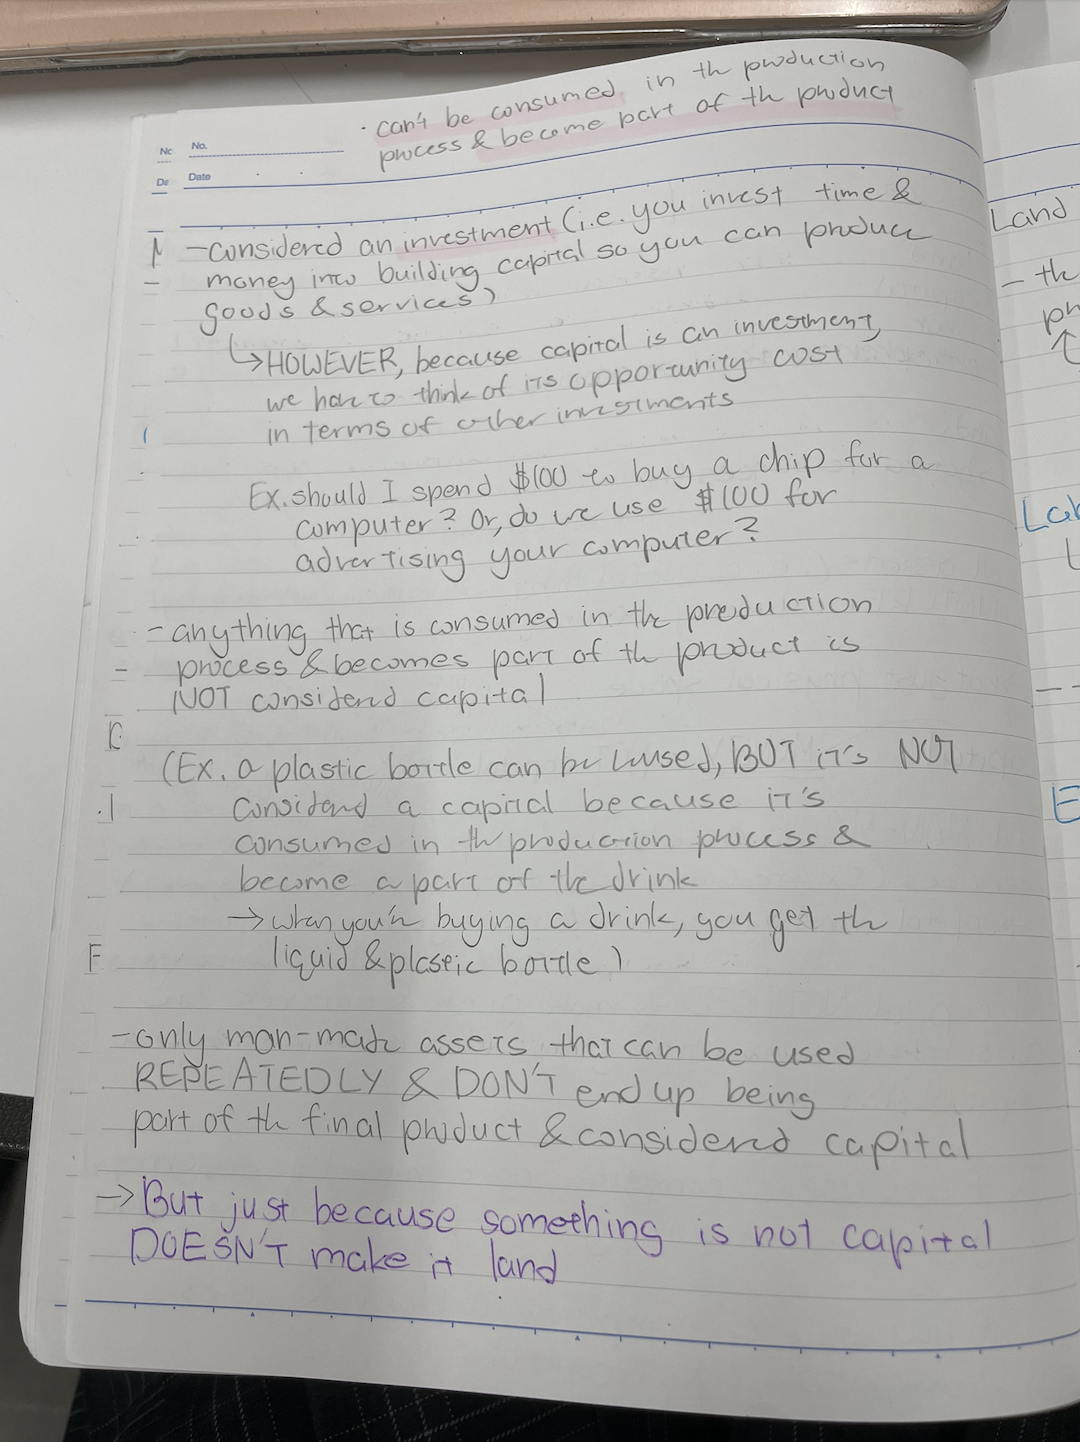 · can't be consumed in th production
process & become part of th product
Nc No.
De Date
- considered an investment (i.e. you invest time &
money into building capital so you can produce
goods & services)
↳ HOWEVER, because capital is an investment,
we have to think of its opportunity cost
in terms of other investments
Ex. should I spend $100 to buy a chip for a
computer? Or, do we use $100 for
advertising your computer?
- anything that is consumed in th production
process & becomes part of th product is
NOT considered capital
(Ex. a plastic bottle can be used, BUT it's NOT
considered a capital because it's
consumed in th production process &
become a part of the drink
→ when you're buying a drink, you get th
liquid & plastic bottle)
- only man-made assets that can be used
REPEATEDLY & DON'T end up being
part of th final product & considered capital
→ But just because something is not capital
DOESN'T make it land
Land
- th
Lab
E
F